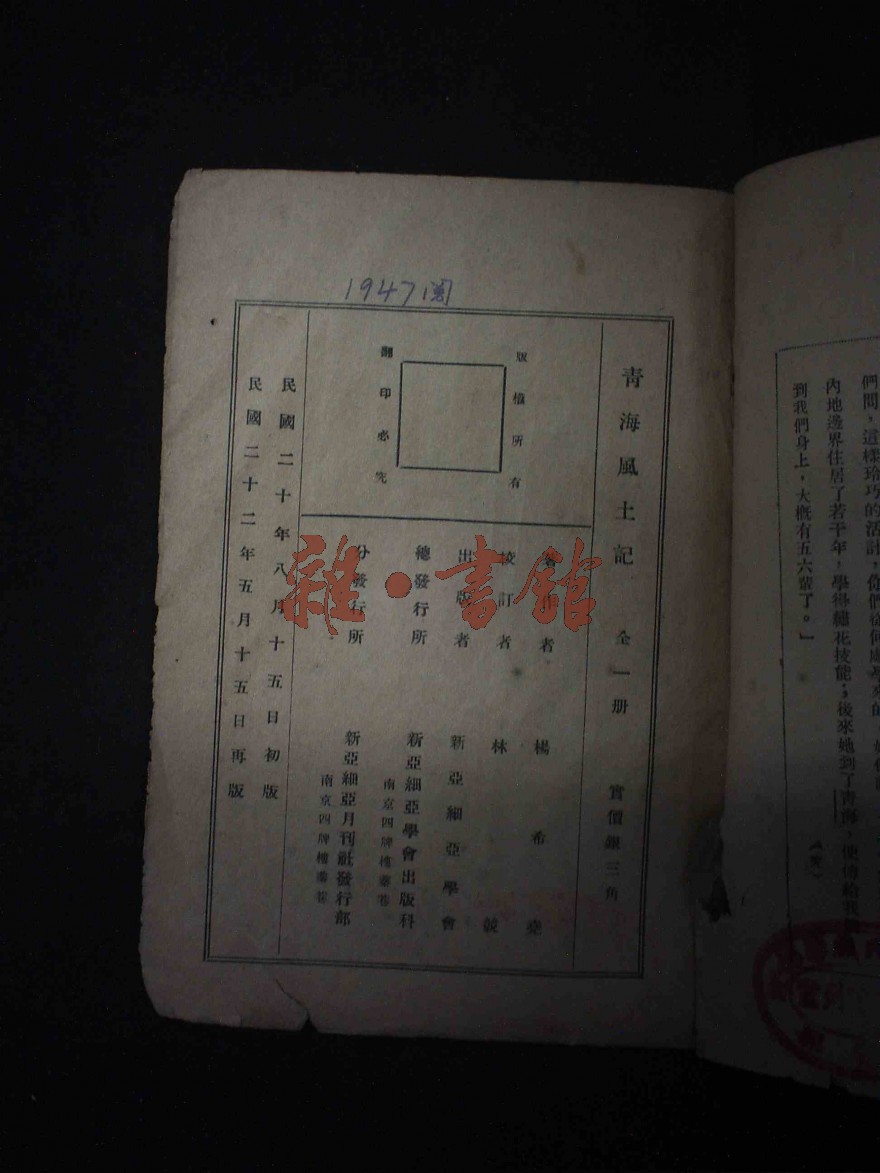 們問，這樣玲巧的活計，你們從何處學來的，
內地邊界住居了若干年，學得繡花技能；後來她到了青海，便傳給我
到我們身上，大概有五六輩了。」
（完）
1947閲
青海風土記 全一册 實價銀三角
版權所有
翻印必究
著作者 楊希堯
校訂者 林競
出版者 新亞細亞學會
總發行所 新亞細亞學會出版科
南京四牌樓蓁巷
分發行所 新亞細亞月刊社發行部
南京四牌樓蓁巷
民國二十年八月十五日初版
民國二十二年五月十五日再版
雜·書館